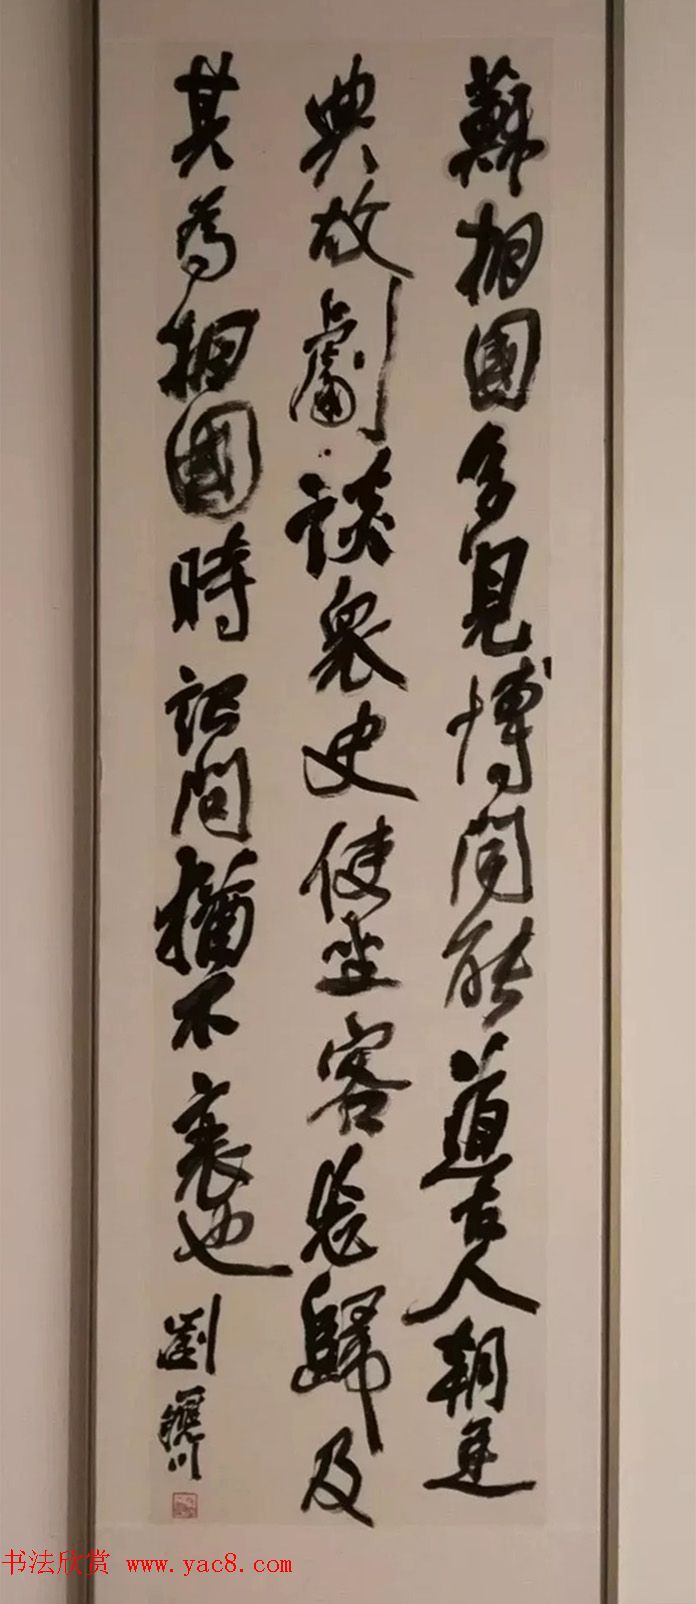 蘇相國多見博聞能道古人朝廷
典故劇談衆史使坐客忘歸及
其為相國時詔問猶不衰也
劉 川
书法欣赏 www.yac8.com